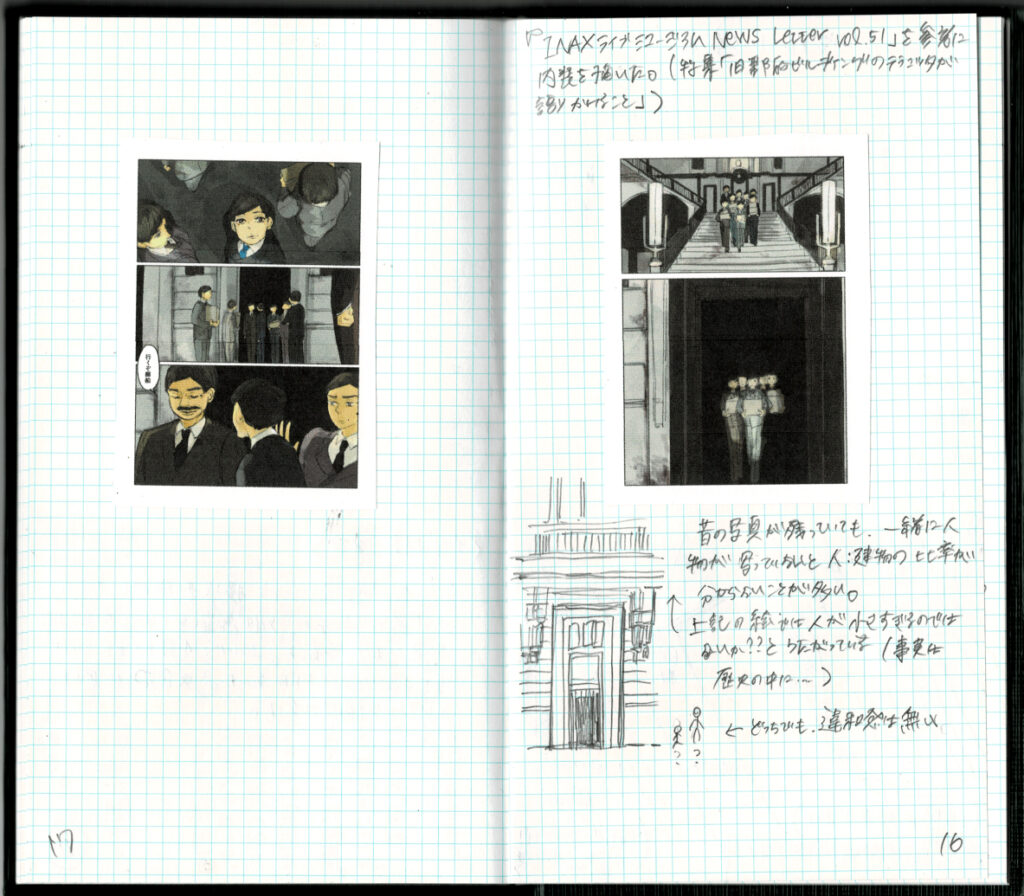 『INAXライブミュージアム NEWS Letter vol.51』を参考に
内装を描いた。(特集「旧郵船ビルディングのテラコッタが
語りかけること」)
昔の写真が残っていても、一緒に人
物が写っていないと人:建物の比率が
分からないことが多い。
↑上記の絵では人が小さすぎるのでは
ないか??とうたがっている(事実は
歴史の中に…)
? ?
←どっちでも、違和感は無い
16
行くぞ
17